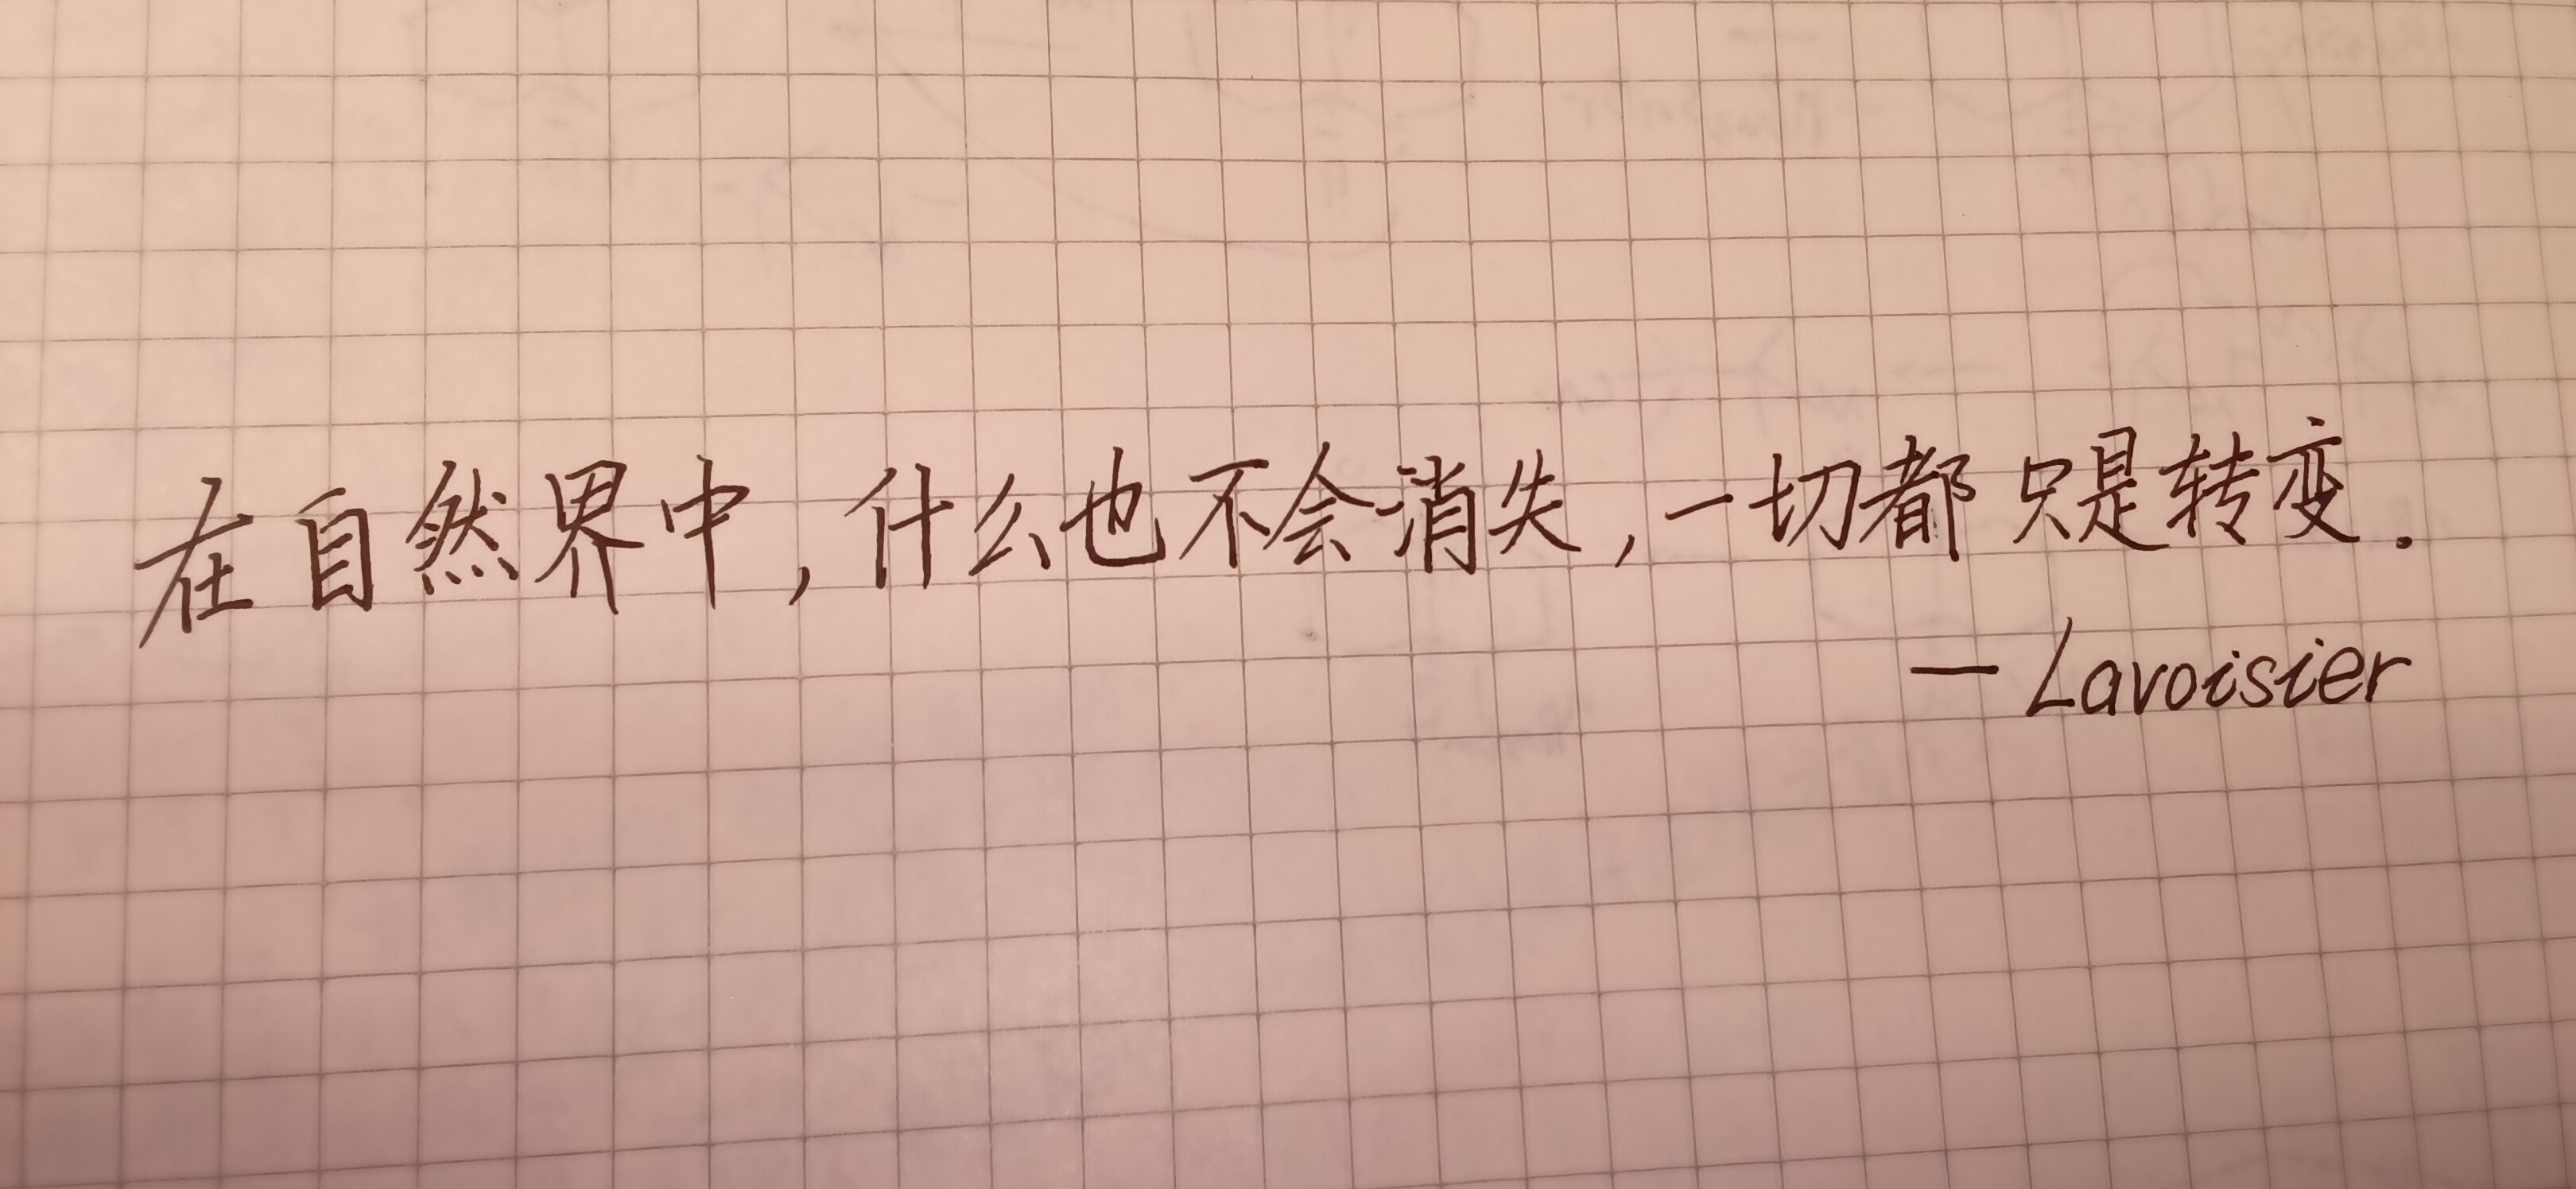 在自然界中,什么也不会消失,一切都只是转变.
— Lavoisier